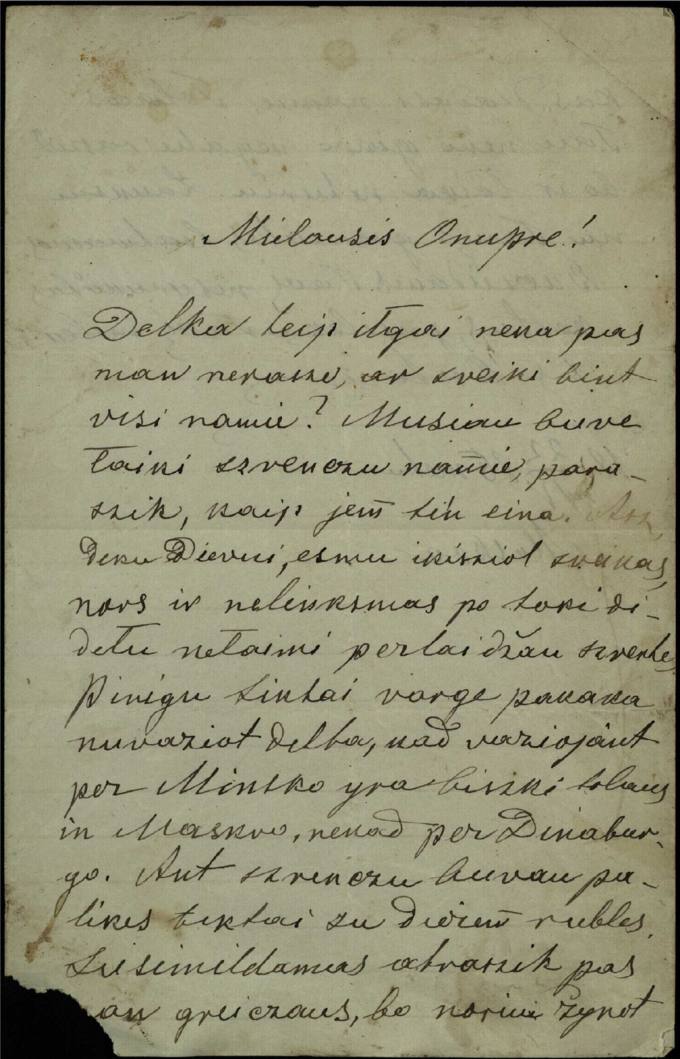 Mielausis Onupre!
Delka teip ilgai neka pas
man neraszei, ar sveiki biut
visi namie? Musiau buvo
łaiki szvenczu namie, para-
szik, kaip jem tin eina. Asz,
deku Dievui, esmu ikisziol sveikas,
nors ir nelinksmas po toki di-
dełu nełaimi perlaidžau szvente,
Pinigu tiktai varge pakaka
nuvaziot delto, kad vaziojánt
per Minsko yra biszki tolaus
in Maskvo, nekad per Dinabur-
go. Ant szvenczu buvau pa-
likes tiktai su dviem rubles.
Susimildamas atraszik pas
man greiczaus, bo noriu žynot